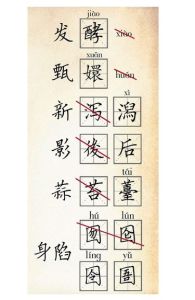 jiào
发 酵 xiào
xuān
甄 嬛 huán
xì
新 泻 潟
影 後 后
tái
蒜 苔 薹
hú lún
囫 囵
身陷
líng yǔ
囹 圄